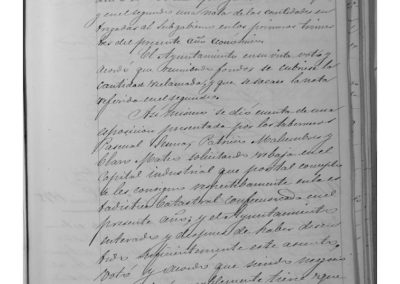 y en el segundo una nota de las cantidades en
tregadas al Subgobierno en los primeros trimes
tres del presente año económico.
El Ayuntamiento en su vista votó y
acordó que reuniendo fondos se cubriera la
cantidad reclamada, y que se sacase la nota
referida en el segundo.
Asi mismo se dió cuenta de una
esposicion presentada por los taberneros
Pascual Patricio
Claro Mateo solicitando rebaja en el
Capital industrial que por tal concepto
se les consigna respectivamente en la es
tadistica Catastral confeccionada en el
presente año; y el Ayuntamiento
enterado y despues de haber discu
tido suficientemente este asunto,
votó y acordó que siendo
tiene que